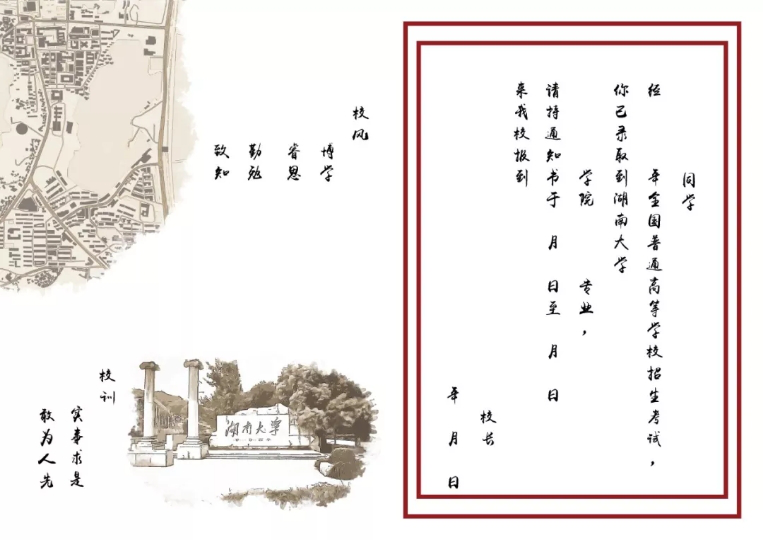 同学
经 年全国普通高等学校招生考试，
你已录取到湖南大学
学院 专业，
请持通知书于 月 日至 月 日
来我校报到
校长
年 月 日
校风
博学
睿思
勤勉
致知
校训
实事求是
敢为人先
湖南大学